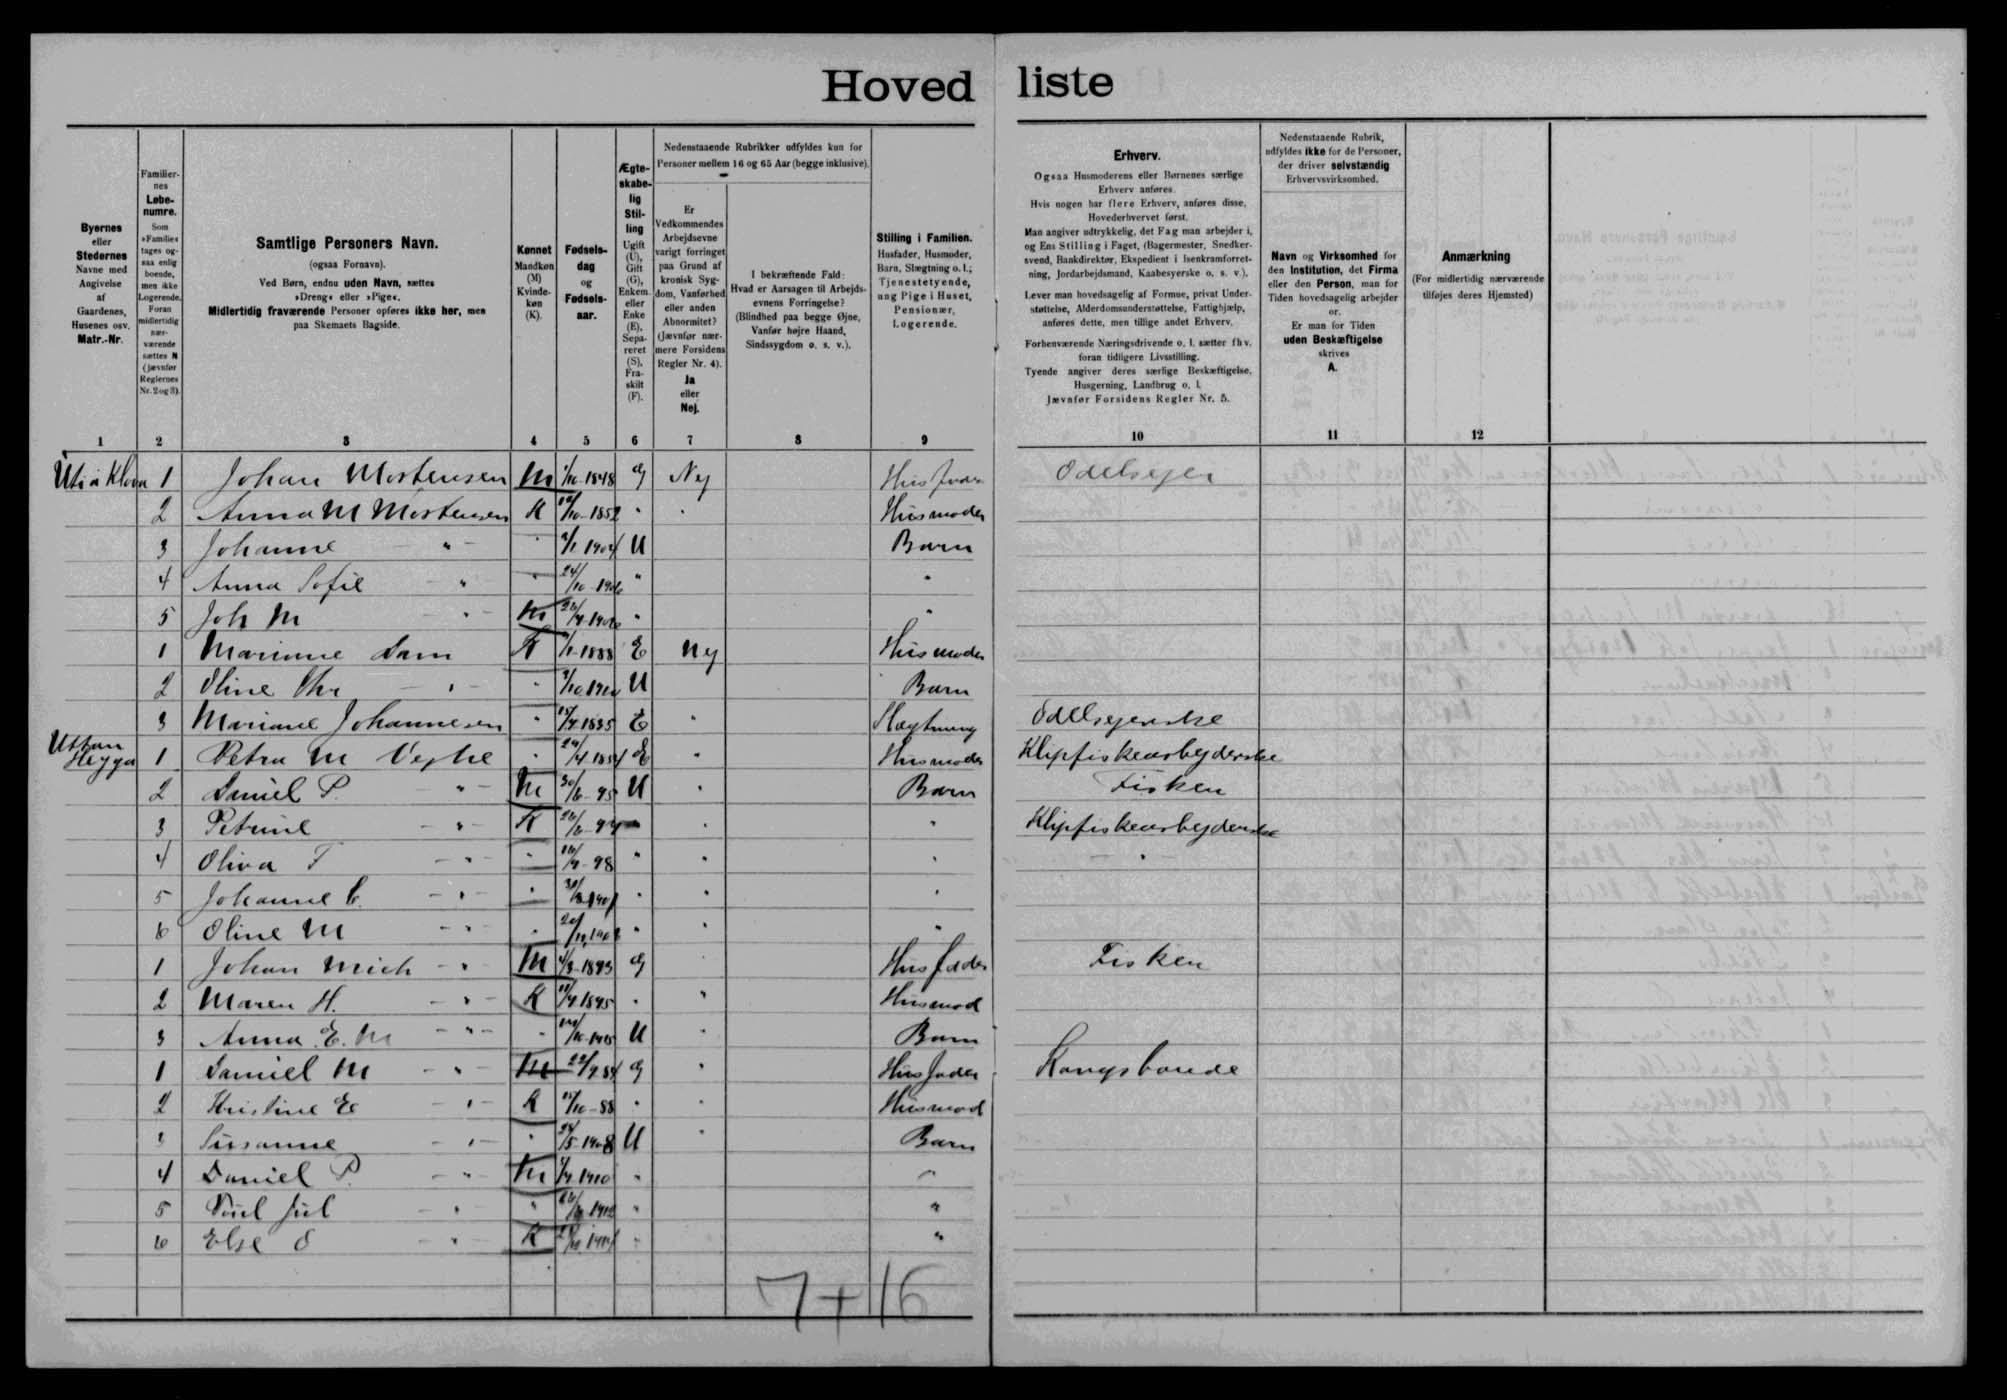 Hoved liste
Byernes
eller
Stedernes
Navne med
Angivelse
af
Gaardenes,
Husenes osv.
Matr.-Nr.
Familier-
nes
Løbe-
numre.
Som
»Familie«
tages og-
saa enlig
boende,
men ikke
Logerende.
Foran
midlertidig
nær-
værende
sættes N
(jævnfør
Reglernes
Nr. 2 og 3).
Samtlige Personers Navn.
(ogsaa Fornavn).
Ved Børn, endnu uden Navn, sættes
»Dreng« eller »Pige«.
Midlertidig fraværende Personer opføres ikke her, men
paa Skemaets Bagside.
Kønnet
Mandkøn
(M)
Kvinde-
køn
(K).
Fødsels-
dag
og
Fødsels-
aar.
Ægte-
skabe-
lig
Stil-
ling
Ugift
(U),
Gift
(G),
Enkem.
eller
Enke
(E),
Sepa-
reret
(S),
Fra-
skilt
(F).
Nedenstaaende Rubrikker udfyldes kun for
Personer mellem 16 og 65 Aar (begge inklusive).
Er
Vedkommendes
Arbejdsevne
varigt forringet
paa Grund af
kronisk Syg-
dom, Vanførhed
eller anden
Abnormitet?
(Jævnfør nær-
mere Forsidens
Regler Nr. 4).
Ja
eller
Nej.
I bekræftende Fald:
Hvad er Aarsagen til Arbejds-
evnens Forringelse?
(Blindhed paa begge Øjne,
Vanfør højre Haand,
Sindssygdom o. s. v.).
Stilling i Familien.
Husfader, Husmoder,
Barn, Slægtning o. l.;
Tjenestetyende,
ung Pige i Huset,
Pensionær,
Logerende.
Erhverv.
Ogsaa Husmoderens eller Børnenes særlige
Erhverv anføres.
Hvis nogen har flere Erhverv, anføres disse,
Hovederhvervet først.
Man angiver udtrykkelig, det Fag man arbejder i,
og Ens Stilling i Faget, (Bagermester, Snedker-
svend, Bankdirektør, Ekspedient i Isenkramforret-
ning, Jordarbejdsmand, Kaabesyerske o. s. v.).
Lever man hovedsagelig af Formue, privat Under-
støttelse, Alderdomsunderstøttelse, Fattighjælp,
anføres dette, men tillige andet Erhverv.
Forhenværende Næringsdrivende o. l. sætter fhv.
foran tidligere Livsstilling.
Tyende angiver deres særlige Beskæftigelse,
Husgerning, Landbrug o. l.
Jævnfør Forsidens Regler Nr. 5.
Nedenstaaende Rubrik,
udfyldes ikke for de Personer,
der driver selvstændig
Erhvervsvirksomhed.
Navn og Virksomhed for
den Institution, det Firma
eller den Person, man for
Tiden hovedsagelig arbejder
or.
Er man for Tiden
uden Beskæftigelse
skrives
A.
Anmærkning
(For midlertidig nærværende
tilføjes deres Hjemsted)
1 2 3 4 5 6 7 8 9 10 11 12
1 Johan Mortensen M 1848 G Nej Husfader Odelsejer
2 Anna M Mortensen K 1852 " " Husmoder
3 Johanne " " U Barn
4 Anna Sofie " " 24/10 " "
5 Joh M " M " "
1 Marianne Dam K E Nej Husmoder
2 Oline Chr " " U Barn
3 Mariane Johannesen " 1835 E " Slægtning Odelsejerske
1 Petra M Vejhe " E " Husmoder Klipfiskearbejderske
2 Daniel P. " M 95 U " Barn Fisker
3 Petrine " K " " Klipfiskearbejderske
4 Oliva " " 98 " " " "
5 Johanne C. " " " " "
6 Oline M " " " " "
1 Johan Mich " M 1893 G Husfader Fisker
2 Maren H. " K 1895 " " Husmod
3 Anna E. M " " U " Barn
1 Daniel M " M G " Husfader Kongsbonde
2 Kristine E " K 88 " " Husmod
3 Susanne " " 1908 U " Barn
4 Daniel P. " M 1910 " "
5 Poul Jul " " 1912 " "
6 Else " K " "
7+16